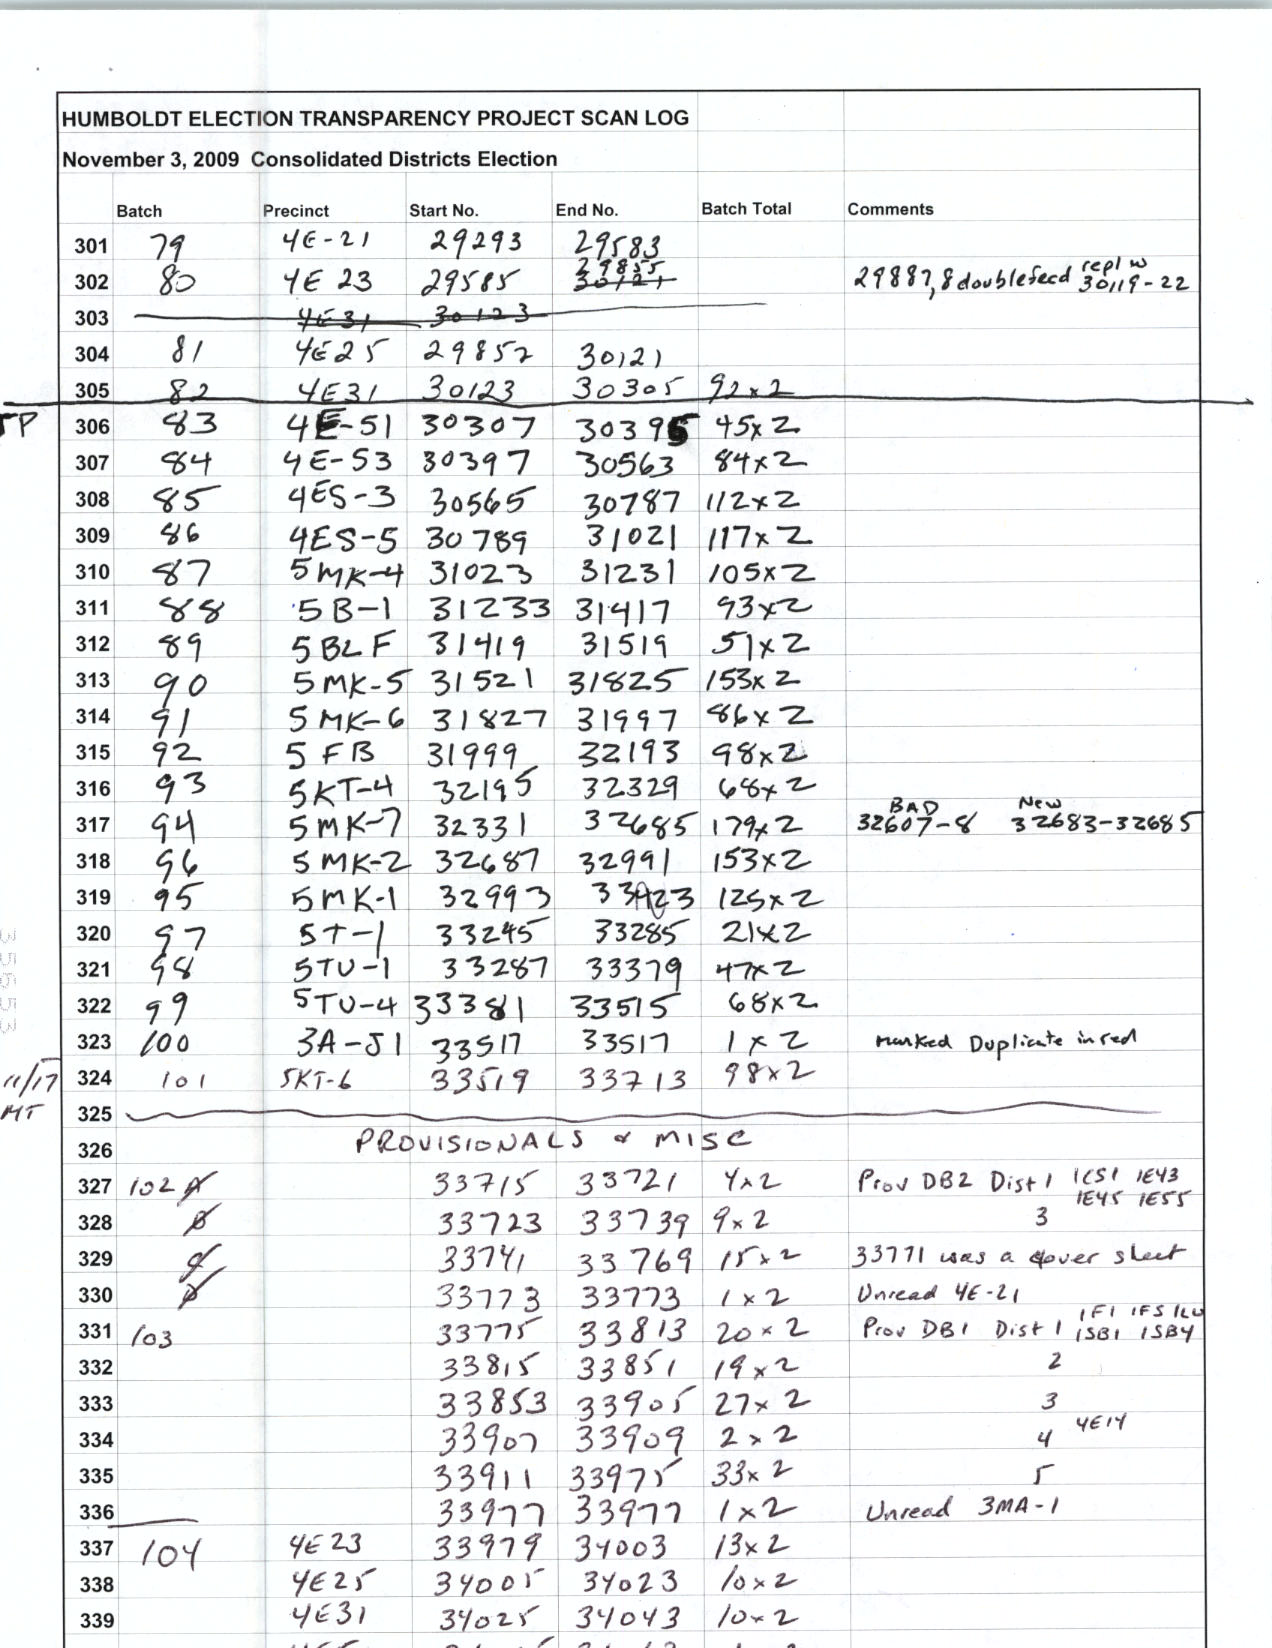 HUMBOLDT ELECTION TRANSPARENCY PROJECT SCAN LOG
November 3, 2009 Consolidated Districts Election
Batch Precinct Start No. End No. Batch Total Comments
301 79 4E-21 29293 29583
302 80 4E 23 29585 29855 30121 29887,8 doublefeed repl w 30119-22
303 4E31 30123
304 81 4E25 29857 30121
305 82 4E31 30123 30305 92x2
306 83 4E-51 30307 30395 45x2
307 84 4E-53 30397 30563 84x2
308 85 4ES-3 30565 30787 112x2
309 86 4ES-5 30789 31021 117x2
310 87 5MK-4 31023 31231 105x2
311 88 5B-1 31233 31417 93x2
312 89 5BLF 31419 31519 51x2
313 90 5MK-5 31521 31825 153x2
314 91 5MK-6 31827 31997 86x2
315 92 5FB 31999 32193 98x2
316 93 5KT-4 32195 32329 68x2
317 94 5MK-7 32331 32685 179x2 BAD 32607-8 New 32683-32685
318 96 5MK-2 32687 32991 153x2
319 95 5MK-1 32993 125x2
320 97 5T-1 33245 33285 21x2
321 98 5TU-1 33287 33379 47x2
322 99 5TU-4 33381 33515 68x2
323 100 3A-J1 33517 33517 1x2 marked Duplicate in red
11/17 324 101 5KT-6 33519 33713 98x2
MT 325
326 PROVISIONALS & MISC
327 102 A 33715 33721 4x2 Prov DB2 Dist 1 1CS1 1E43
1E45 1E55
328 B 33723 33739 9x2 3
329 C 33741 33769 15x2 33771 was a cover sheet
330 D 33773 33773 1x2 Unread 4E-21
331 103 33775 33813 20x2 Prov DB1 Dist 1 1F1 1FS 1SB1 1SB4
332 33815 33851 19x2 2
333 33853 33905 27x2 3
334 33907 33909 2x2 4 4E14
335 33911 33975 33x2 5
336 33977 33977 1x2 Unread 3MA-1
337 104 4E23 33979 34003 13x2
338 4E25 34005 34023 10x2
339 4E31 34025 34043 10x2